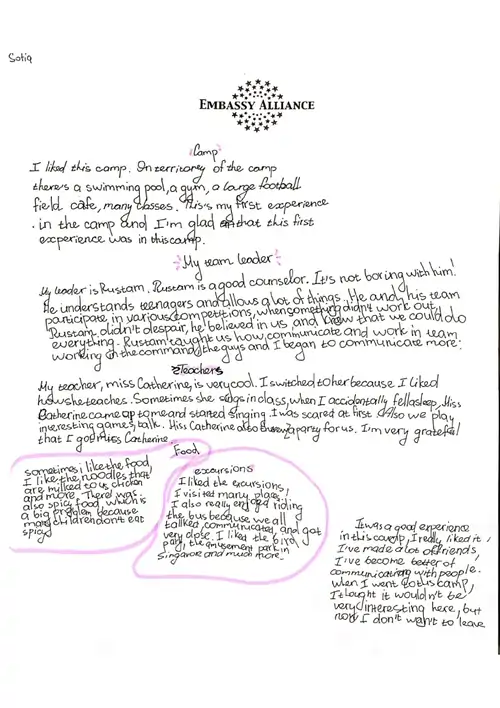 Sofia
EMBASSY ALLIANCE
Camp
I liked this camp. On territorey of the camp
there's a swimming pool, a gym, a large football
field cafe, many classes. This's my first experience
in the camp and I'm glad that this first
experience was in this camp.
My team leader
My leader is Rustam. Rustam is a good counselor. It's not boring with him!
He understands teenagers and allows a lot of things. He and his team
participate in various competitions, when something didn't work out,
Rustam didn't despair, he believed in us and knew that we could do
everything. Rustam taught us how communicate and work in team
working on the command, the guys and I began to communicate more.
Teachers
My teacher, miss Catherine, is very cool. I switched to her because I liked
how she teaches. Sometimes she sings in class, when I accidentally fell asleep, Miss
Catherine came up to me and started singing. I was scared at first. Also we play
interesting games, talk. Miss Catherine also threw a party for us. I'm very grateful
that I got miss Catherine.
Food
sometimes i like the food,
I like the noodles that
are milked to us, chicken
and more. There was
also spicy food, which is
a big problem because
many children don't eat
spicy
excursions
I liked the excursions,
I visited many places,
I also really enjoyed riding
the bus because we all
talked, communicated, and got
very close. I liked the bird
park, the amusement park in
Singapore and much more.
It was a good experience
in this camp, I really liked it,
I've made a lot of friends,
I've become better of
communicating with people.
when I went to this camp,
I thought it wouldn't be
very interesting here, but
now I don't want to leave